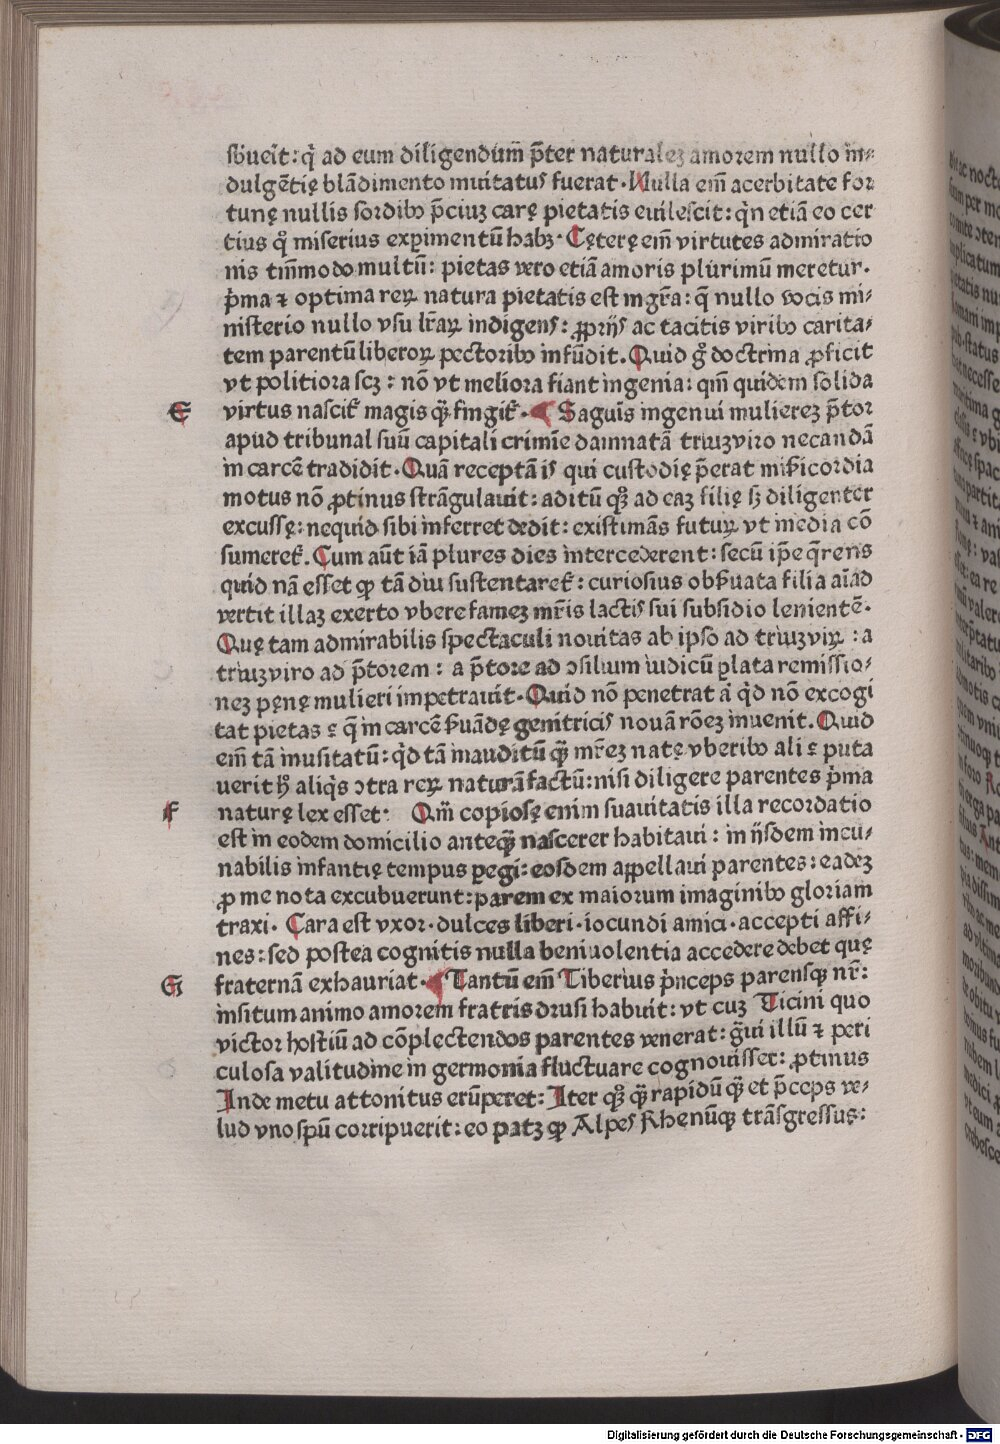 sb̄ueit: q̇ ad eum diligendum̄ p̄ter naturaleʒ amorem nullo in⸗
dulgētię blādimento inuitatus fuerat. Nulla em̄ acerbitate for
tunę nullis sordibꝰ p̄ciuʒ carę pietatis euilescit: q̇n etiā eo cer
tius qͦ miserius exꝑimentū habꝫ. Cęterę em̄ virtutes admiratio
nis tm̄modo multū: pietas vero etiā amoris plurimū meretur.
p̄ma ⁊ optima reꝝ natura pietatis est mgr̄a: q̄ nullo vocis mi⸗
nisterio nullo vsu lr̄aꝝ indigens: ꝓprijs ac tacitis viribꝰ carita⸗
tem parentū liberoꝝ pectoribꝰ infūdit. Quid gͦ doctrina ꝓficit
vt politiora scꝫ: nō vt meliora fiant ingenia: qm̄ quidem solida
E virtus nascit̄ magis q̄ꝫ fingit̄. Saguīs ingenui muliereʒ p̄tor
apud tribunal suū capitali crimīe damnatā triuʒviro necandā
in carcē tradidit. Quā receptā is qui custodię p̄erat mīsericordia
motus nō ꝓtinus strāgulauit: aditū qͦꝫ ad eaʒ filię sꝫ diligenter
excussę: nequid sibi inferret dedit: existimās futuꝝ vt inedia cō
sumeret̄. Cum aūt iā plures dies intercederent: secū ip̄e q̄rens
quid nā esset ꝙ tā diu sustentaret̄: curiosius obs̄uata filia aīad
vertit illaʒ exerto vbere fameʒ mr̄is lactis sui subsidio lenientē.
Quę tam admirabilis spectaculi nouitas ab ipso ad triuʒviꝝ: a
triuʒviro ad p̄torem: a p̄tore ad ↄsilium iudicū ꝑlata remissio⸗
neʒ pęnę mulieri impetrauit. Quid nō penetrat ā q̇d nō excogi
tat pietas? q̄ in carcē s̄uādę genitricis nouā rōeʒ inuenit. Quid
em̄ tā inusitatū: q̇d tā inauditū q̄ꝫ mr̄eʒ natę vberibꝰ ali? puta
uerit hͦ aliq̇s ↄtra reꝝ naturā factū: nisi diligere parentes p̄ma
F naturę lex esset. Qm̄ copiosę enim suauitatis illa recordatio
est in eodem domicilio anteq̄ꝫ nascerer habitaui: in ijsdem incu⸗
nabilis infantię tempus ꝑegi: eosdem appellaui parentes: eadeʒ
ꝓ me nota excubuerunt: parem ex maiorum imaginibꝰ gloriam
traxi. Cara est vxor. dulces liberi. iocundi amici. accepti affi⸗
nes: sed postea cognitis nulla beniuolentia accedere debet quę
G fraternā exhauriat. Tantū em̄ Tiberius p̄nceps parensqꝫ nr̄:
insitum animo amorem fratris drusi habuit: vt cuʒ Ticini quo
victor hostiū ad cōplectendos parentes venerat: g̈ui illū ⁊ peri
culosa valitudine in germonia fluctuare cognouisset: ꝓtinus
Inde metu attonitus erūperet: Iter qͦꝫ q̄ꝫ rapidū q̄ꝫ et p̄ceps ve⸗
lud vno spū corripuerit: eo patꝫ ꝙ Alpes Rhenūqꝫ trāsgressus:
Digitalisierung gefördert durch die Deutsche Forschungsgemeinschaft - DFG